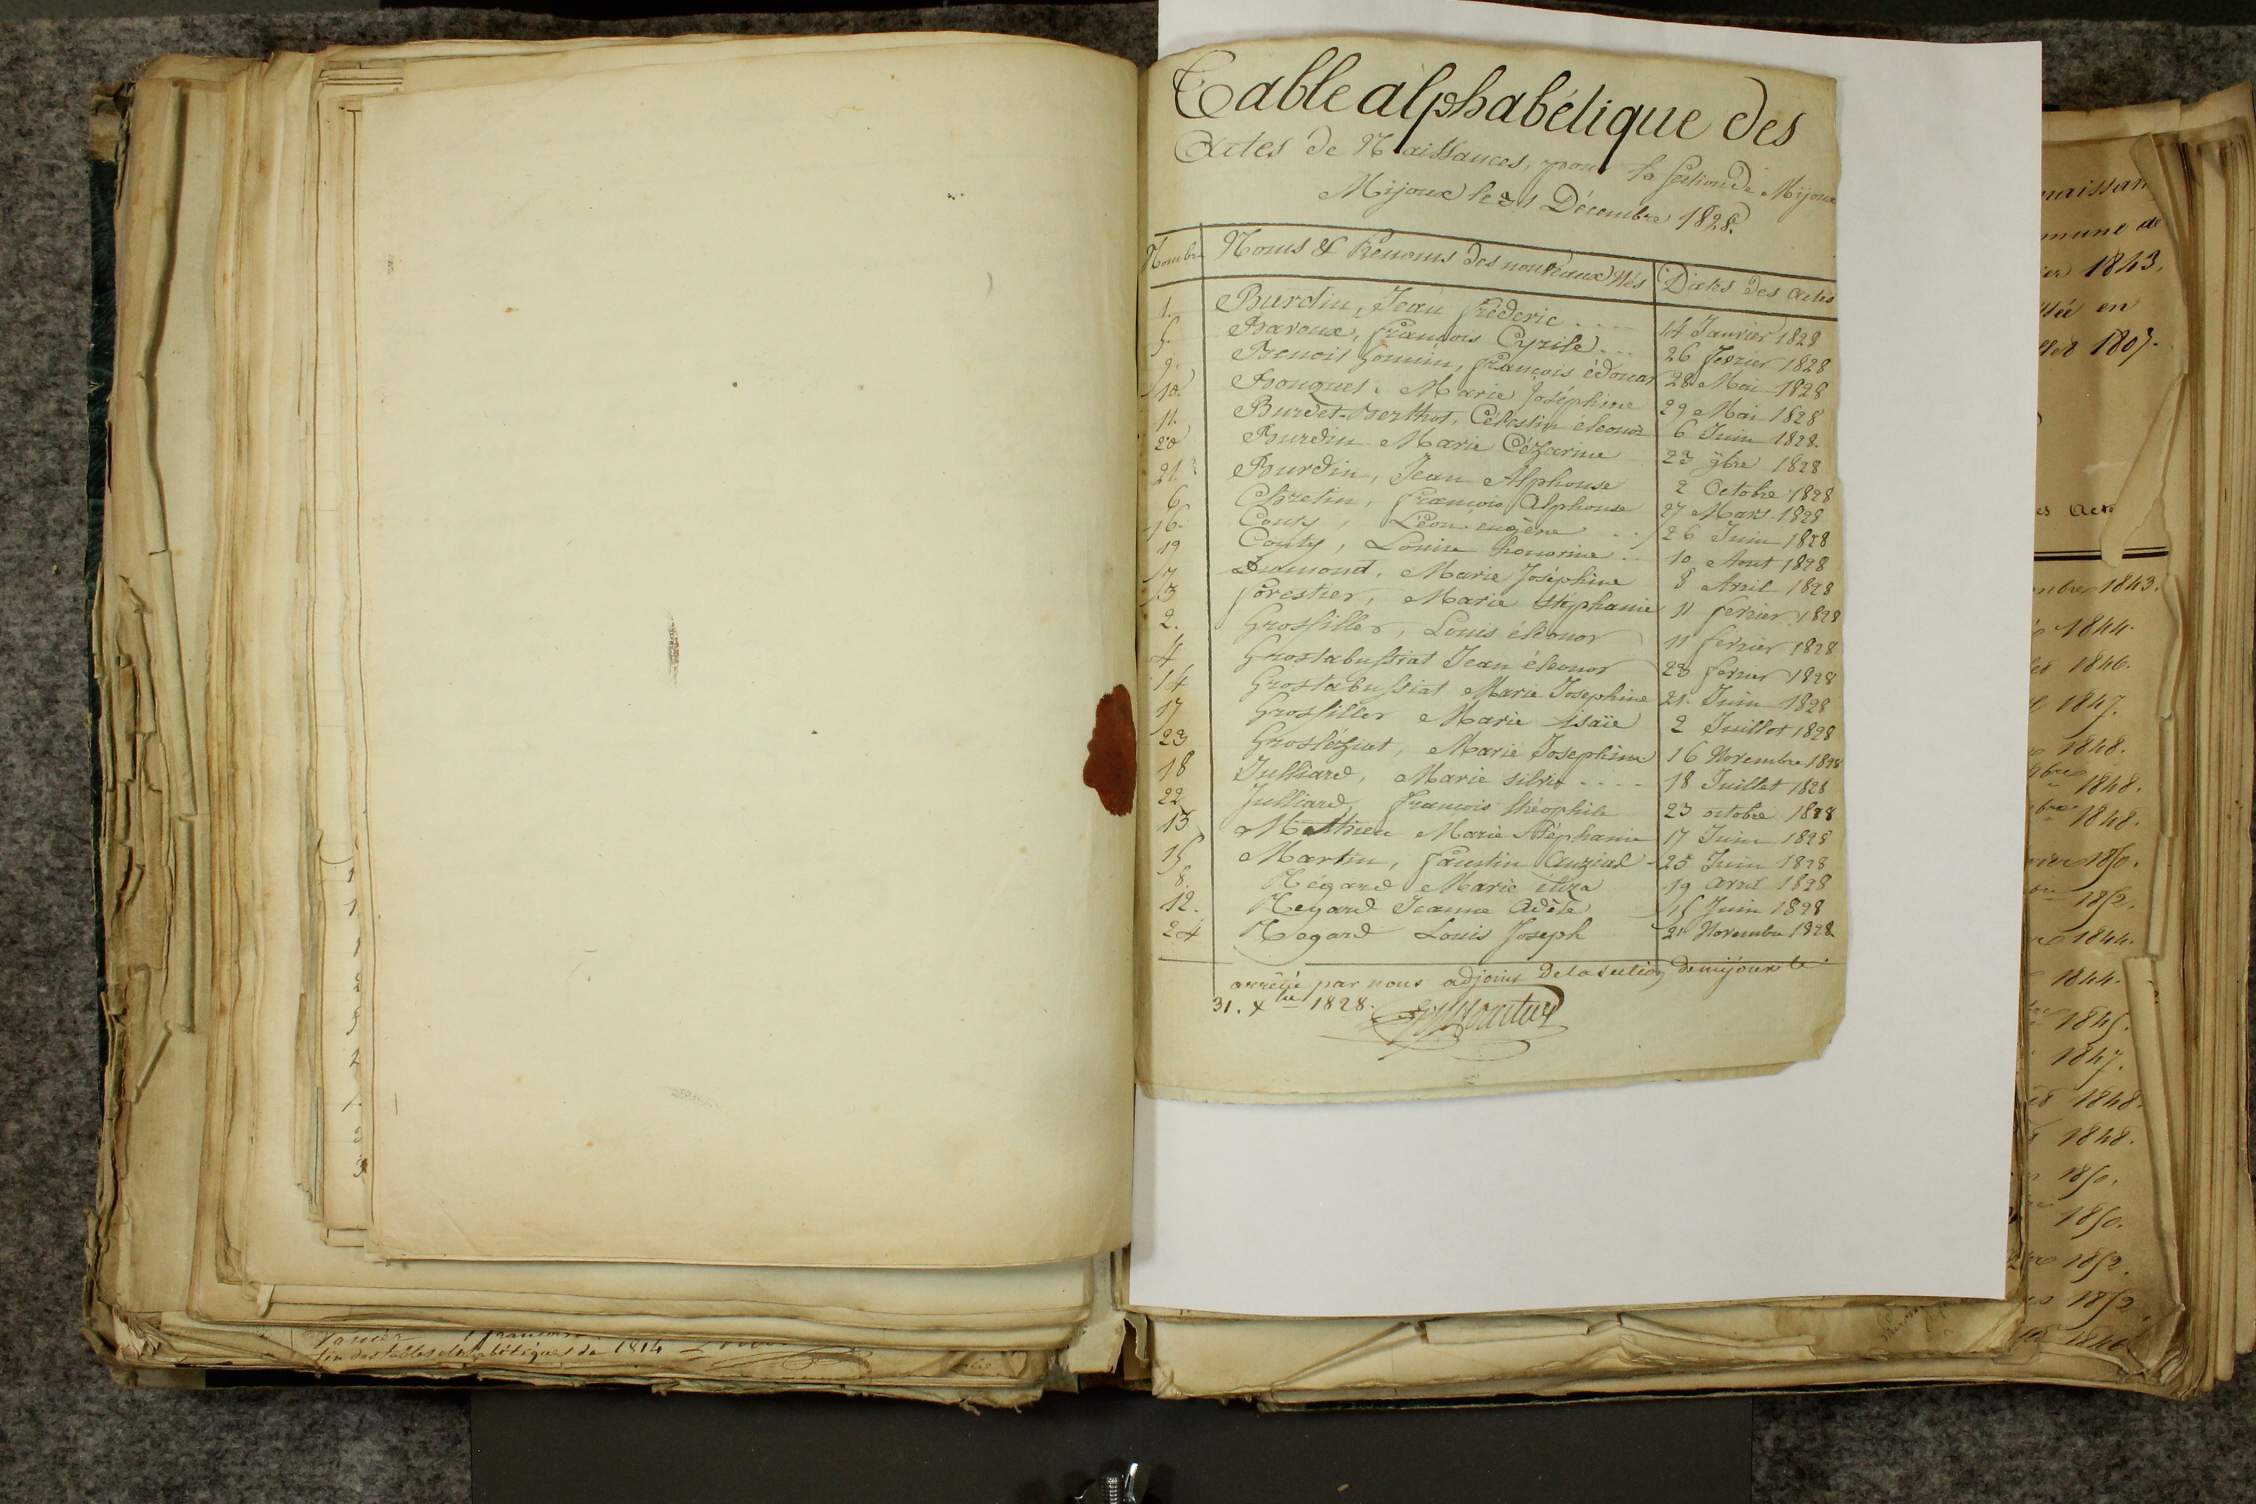 Table alphabétique des
Actes de Naissances, pour la section de Mijoux
Mijoux le 31 Décembre 1828.
Nombre Noms & Prénoms des nouveaux Nés Dates des actes
1. Burdin, Jean fréderic .... 14 Janvier 1828
5. Baroux, françois Cyrile ... 26 fevrier 1828
9. Benoit Gonnin, françois édouar 28 Mai 1828
10. Bouquet. Marie Joséphine 29 Mai 1828
11. Burdet-Berthot, Célestin éleonor 6 Juin 1828.
20 Burdin Marie Cézarine 23 9bre 1828
21. Burdin, Jean Alphonse 2 Octobre 1828
6. Chretin, françois Alphonse 27 Mars 1828
16. Couty, Léon eugène .. 26 Juin 1828
19 Couty, Louise honorine .. 10 Aout 1828
7 Dumont, Marie Joséphine 8 Avril 1828
3 forestier, Marie Stéphanie 11 fevrier 1828
2. Grosfiller, Louis éléonor 11 fevrier 1828
4 Grostabussiat Jean éleonor 23 fevrier 1828
14 Grostabussiat Marie Josephine 21. Juin 1828
17 Grosfiller Marie isaïe 2 Juillet 1828
23 Grosléziat, Marie Josephine 16 Novembre 1828
18 Julliard, Marie silvie .... 18 Juillet 1828
22 Julliard, francois théophile 23 octobre 1828
13 Mathieu Marie Stéphanie 17 Juin 1828
15 Martin, faustin 25 Juin 1828
8. Régard Marie éliza 19 avril 1828
12. Regard Jeanne Adèle 15 Juin 1828
24 Regard Louis Joseph 21 Novembre 1828
arrêté par nous adjoint de la section de mijoux le
31. Xbre 1828.
naissan
mune de
1843.
en
1807.
es Act
mbre 1843.
1844.
1846.
1847.
1848.
1848.
1848.
1850.
1852.
1844.
1844.
1845.
1847.
1848.
1848.
1850.
1850.
1852.
1852
1846
fin des tables alphabétiques de 1814